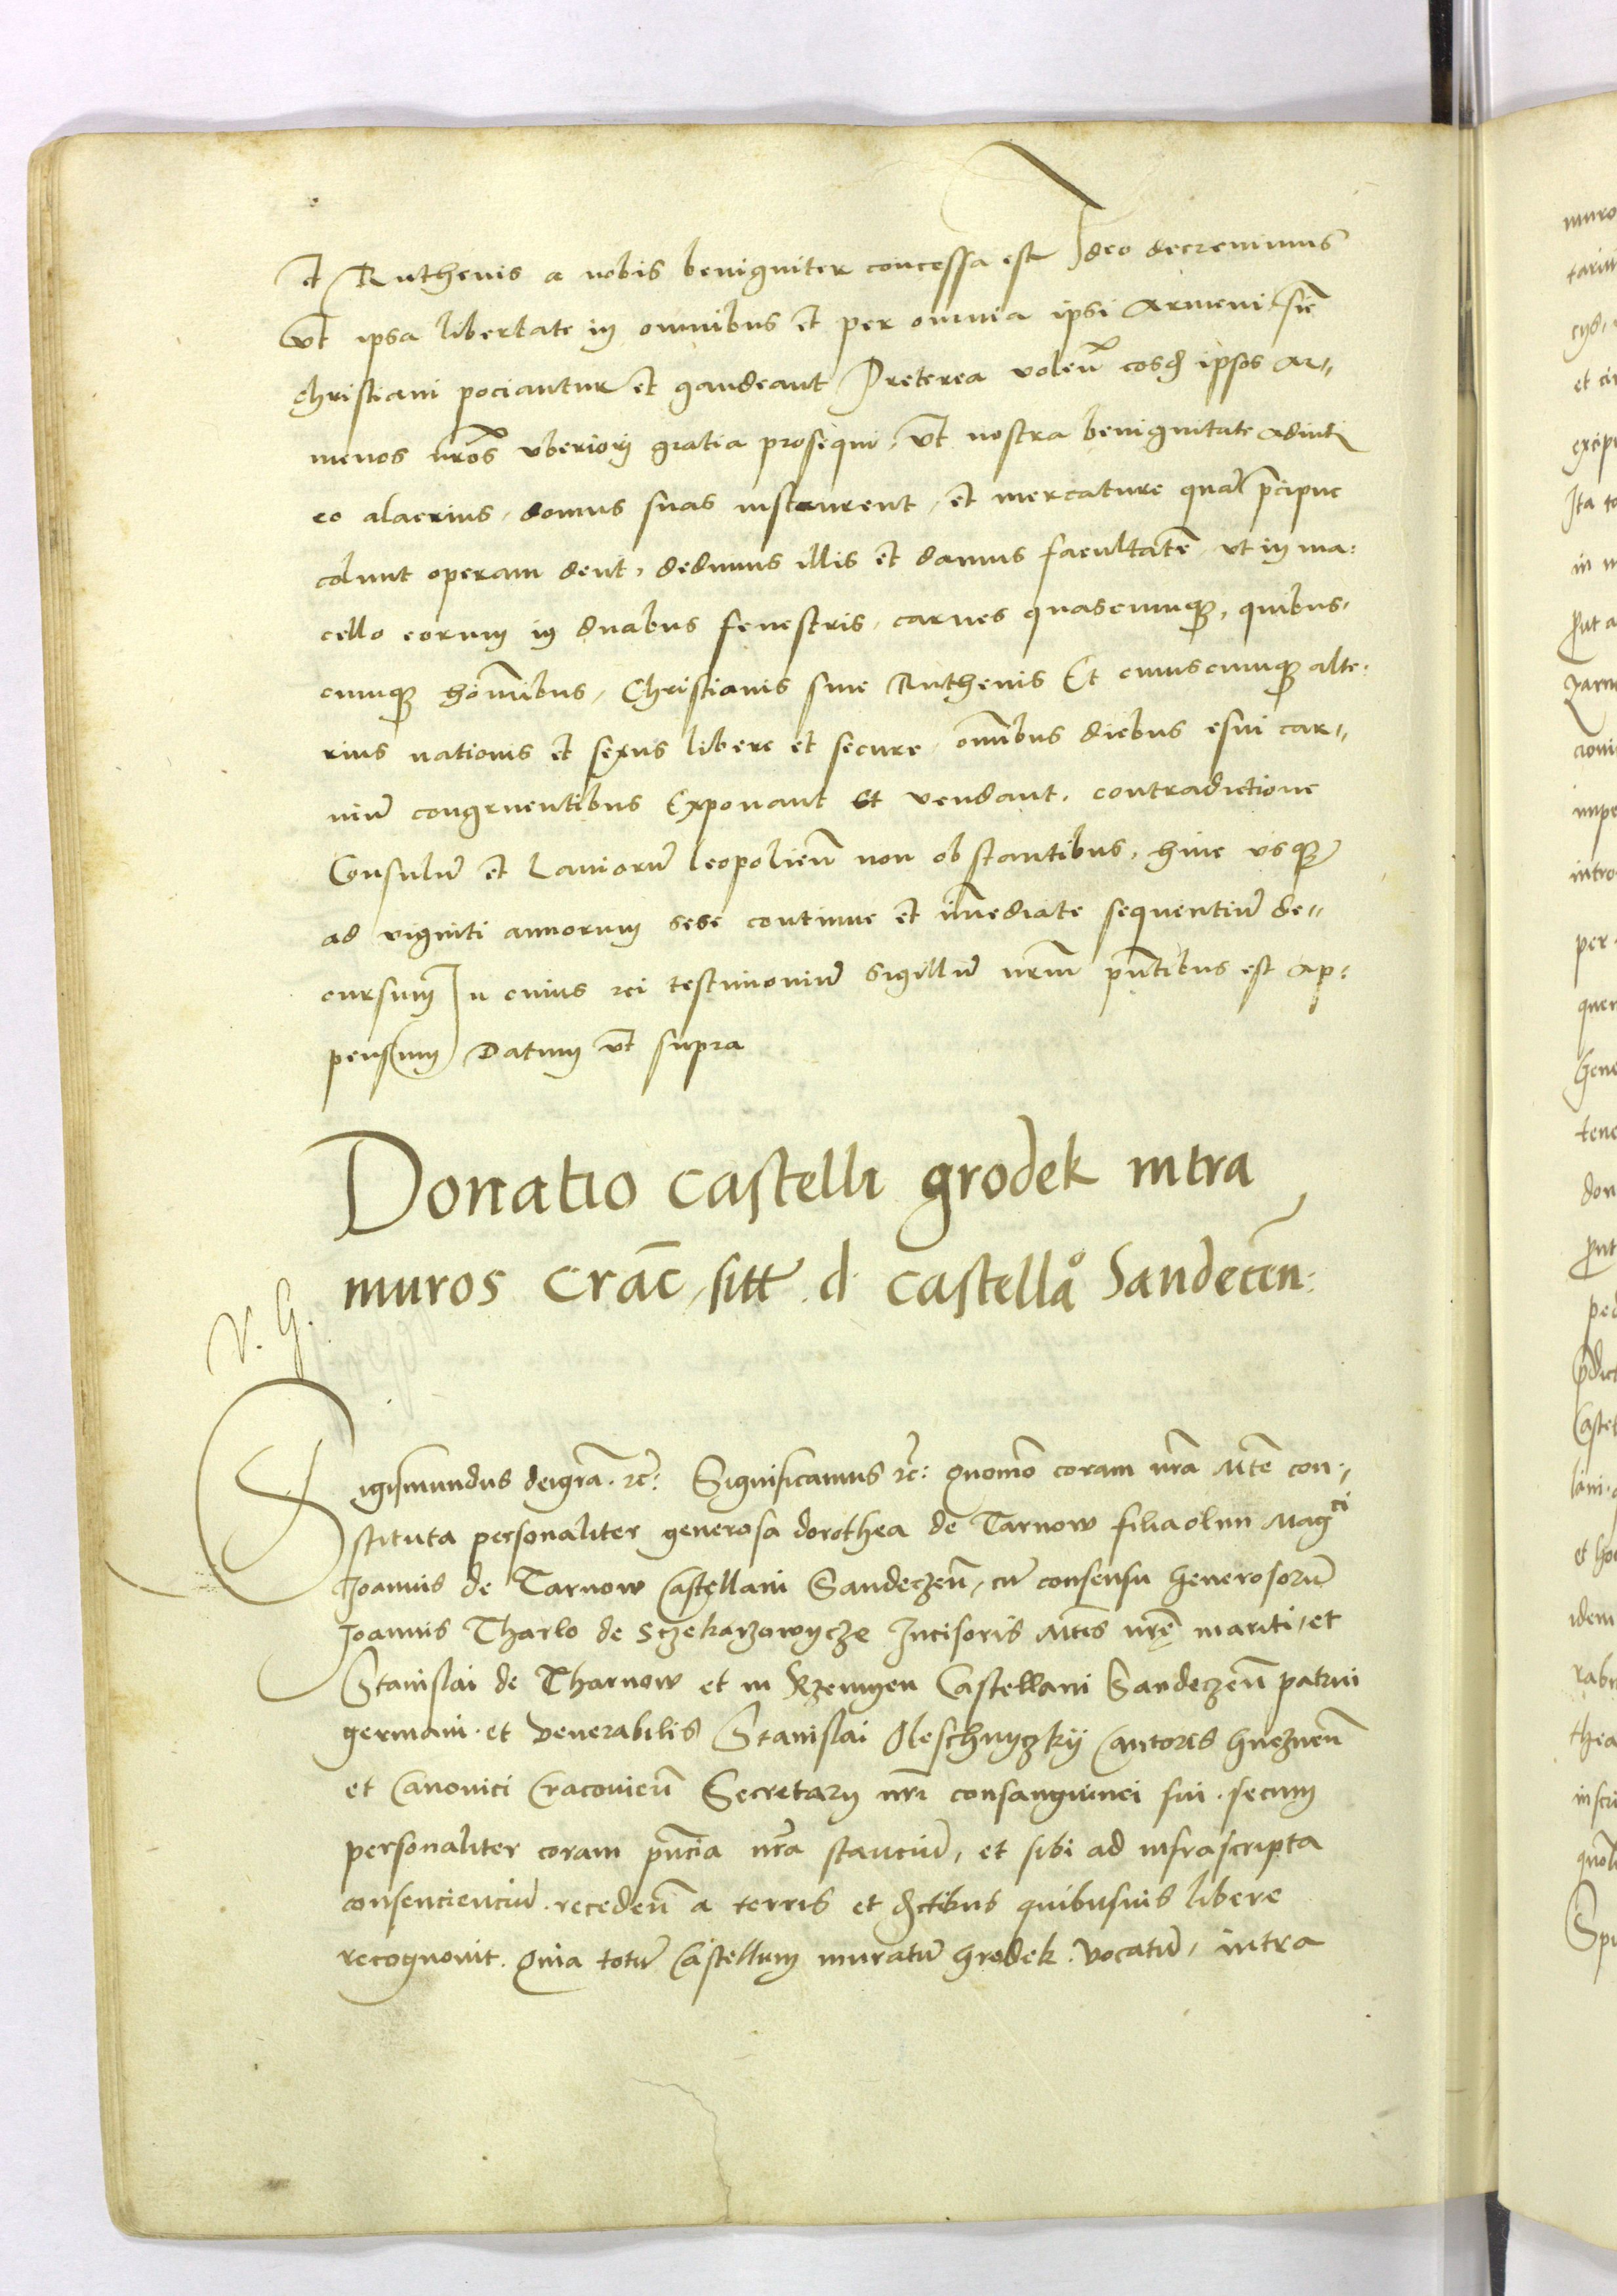 et Ruthenis a nobis benigniter concessa est Ideo decrevimus
vt ipsa libertate in omnibus et per omnia ipsi Armeni sic̄
christiani pociantur et gaudeant Preterea volen̄ eosd̄ ipsos Ar-
menos nr̄os vberiori gratia prosequi, vt nostra benignitate adiuti
eo alacrius, domus suas instaurent, et mercature quā p̄cipue
colunt operam dent, dedimus illis et damus facultatē, vt in ma-
cello eorum in duabus fenestris, carnes quascumq3, quibus-
cumq3 hōībus, Christianis siue Ruthenis Et cuiuscumq3 alte-
rius nationis et sexus libere et secure, om̄ibus diebus esui car-
niū congruentibus Exponant et vendant, contradictione
Consulū et Laniorū leopolien̄ non obstantibus, hinc vsq3
ad viginti annorum sese continue et im̄ediate sequentiū de-
cursum In cuius rei testimoniū sigillū nr̄m pn̄tibus est ap-
pensum Datum vt supra
Donatio castelli grodek intra
muros crac̄, sitt. d. castellāo Sandecen̄:
V. G.
Sigismundus dei gr̄a. rc̄: Significamus rc̄: Quomō coram nr̄a Mtē con-
stituta personaliter generosa dorothea de Tarnow filia olim Mag^ci
Joannis de Tarnow Castellani Sandeczen̄, cū consensu Generosorū
Joannis Tharlo de Sczekarzowycze Incisoris Mtis̄ nr̄ę mariti, et
Stanislai de Tharnow et in Rzemyen Castellani Sandeczen̄ patrui
germani. et Venerabilis Stanislai Oleschnyczkij Cantoris Gneznen̄
et Canonici Cracovien̄ Secretarij nr̄i consanguinei sui. secum
personaliter coram pn̄cia nr̄a stanciū, et sibi ad infrascripta
consencienciū. receden̄ a terris et dictibus quibusuis libere
recognouit. Quia totū Castellum muratū Grodek. vocatū, intra